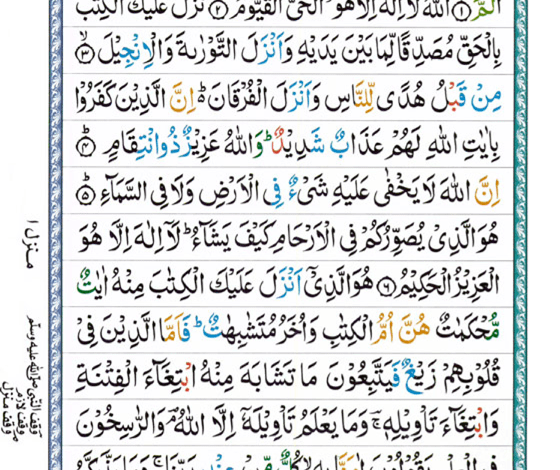 الٓمّٓ ۝۱ اللّٰهُ لَاۤ اِلٰهَ اِلَّا هُوَ الۡحَیُّ الۡقَیُّوۡمُ ۝۲ نَزَّلَ عَلَیۡكَ الۡكِتٰبَ
بِالۡحَقِّ مُصَدِّقًا لِّمَا بَیۡنَ یَدَیۡهِ وَاَنۡزَلَ التَّوۡرٰىةَ وَالۡاِنۡجِیۡلَ ۝۳
مِنۡ قَبۡلُ هُدًی لِّلنَّاسِ وَاَنۡزَلَ الۡفُرۡقَانَ ؕ اِنَّ الَّذِیۡنَ كَفَرُوۡا
بِاٰیٰتِ اللّٰهِ لَهُمۡ عَذَابٌ شَدِیۡدٌ ؕ وَاللّٰهُ عَزِیۡزٌ ذُو انۡتِقَامٍ ۝۴ؕ
اِنَّ اللّٰهَ لَا یَخۡفٰی عَلَیۡهِ شَیۡءٌ فِی الۡاَرۡضِ وَلَا فِی السَّمَآءِ ۝۵ؕ
هُوَ الَّذِیۡ یُصَوِّرُكُمۡ فِی الۡاَرۡحَامِ كَیۡفَ یَشَآءُ ؕ لَاۤ اِلٰهَ اِلَّا هُوَ
الۡعَزِیۡزُ الۡحَكِیۡمُ ۝۶ هُوَ الَّذِیۡۤ اَنۡزَلَ عَلَیۡكَ الۡكِتٰبَ مِنۡهُ اٰیٰتٌ
مُّحۡكَمٰتٌ هُنَّ اُمُّ الۡكِتٰبِ وَاُخَرُ مُتَشٰبِهٰتٌ ؕ فَاَمَّا الَّذِیۡنَ فِیۡ
قُلُوۡبِهِمۡ زَیۡغٌ فَیَتَّبِعُوۡنَ مَا تَشَابَهَ مِنۡهُ ابۡتِغَآءَ الۡفِتۡنَةِ
وَابۡتِغَآءَ تَاۡوِیۡلِهٖ ۚ وَمَا یَعۡلَمُ تَاۡوِیۡلَهٗۤ اِلَّا اللّٰهُ ۘ وَالرّٰسِخُوۡنَ
منزل ۱
وقف النبی صلی اللہ علیہ وسلم
وقف لازم
وقف منزل